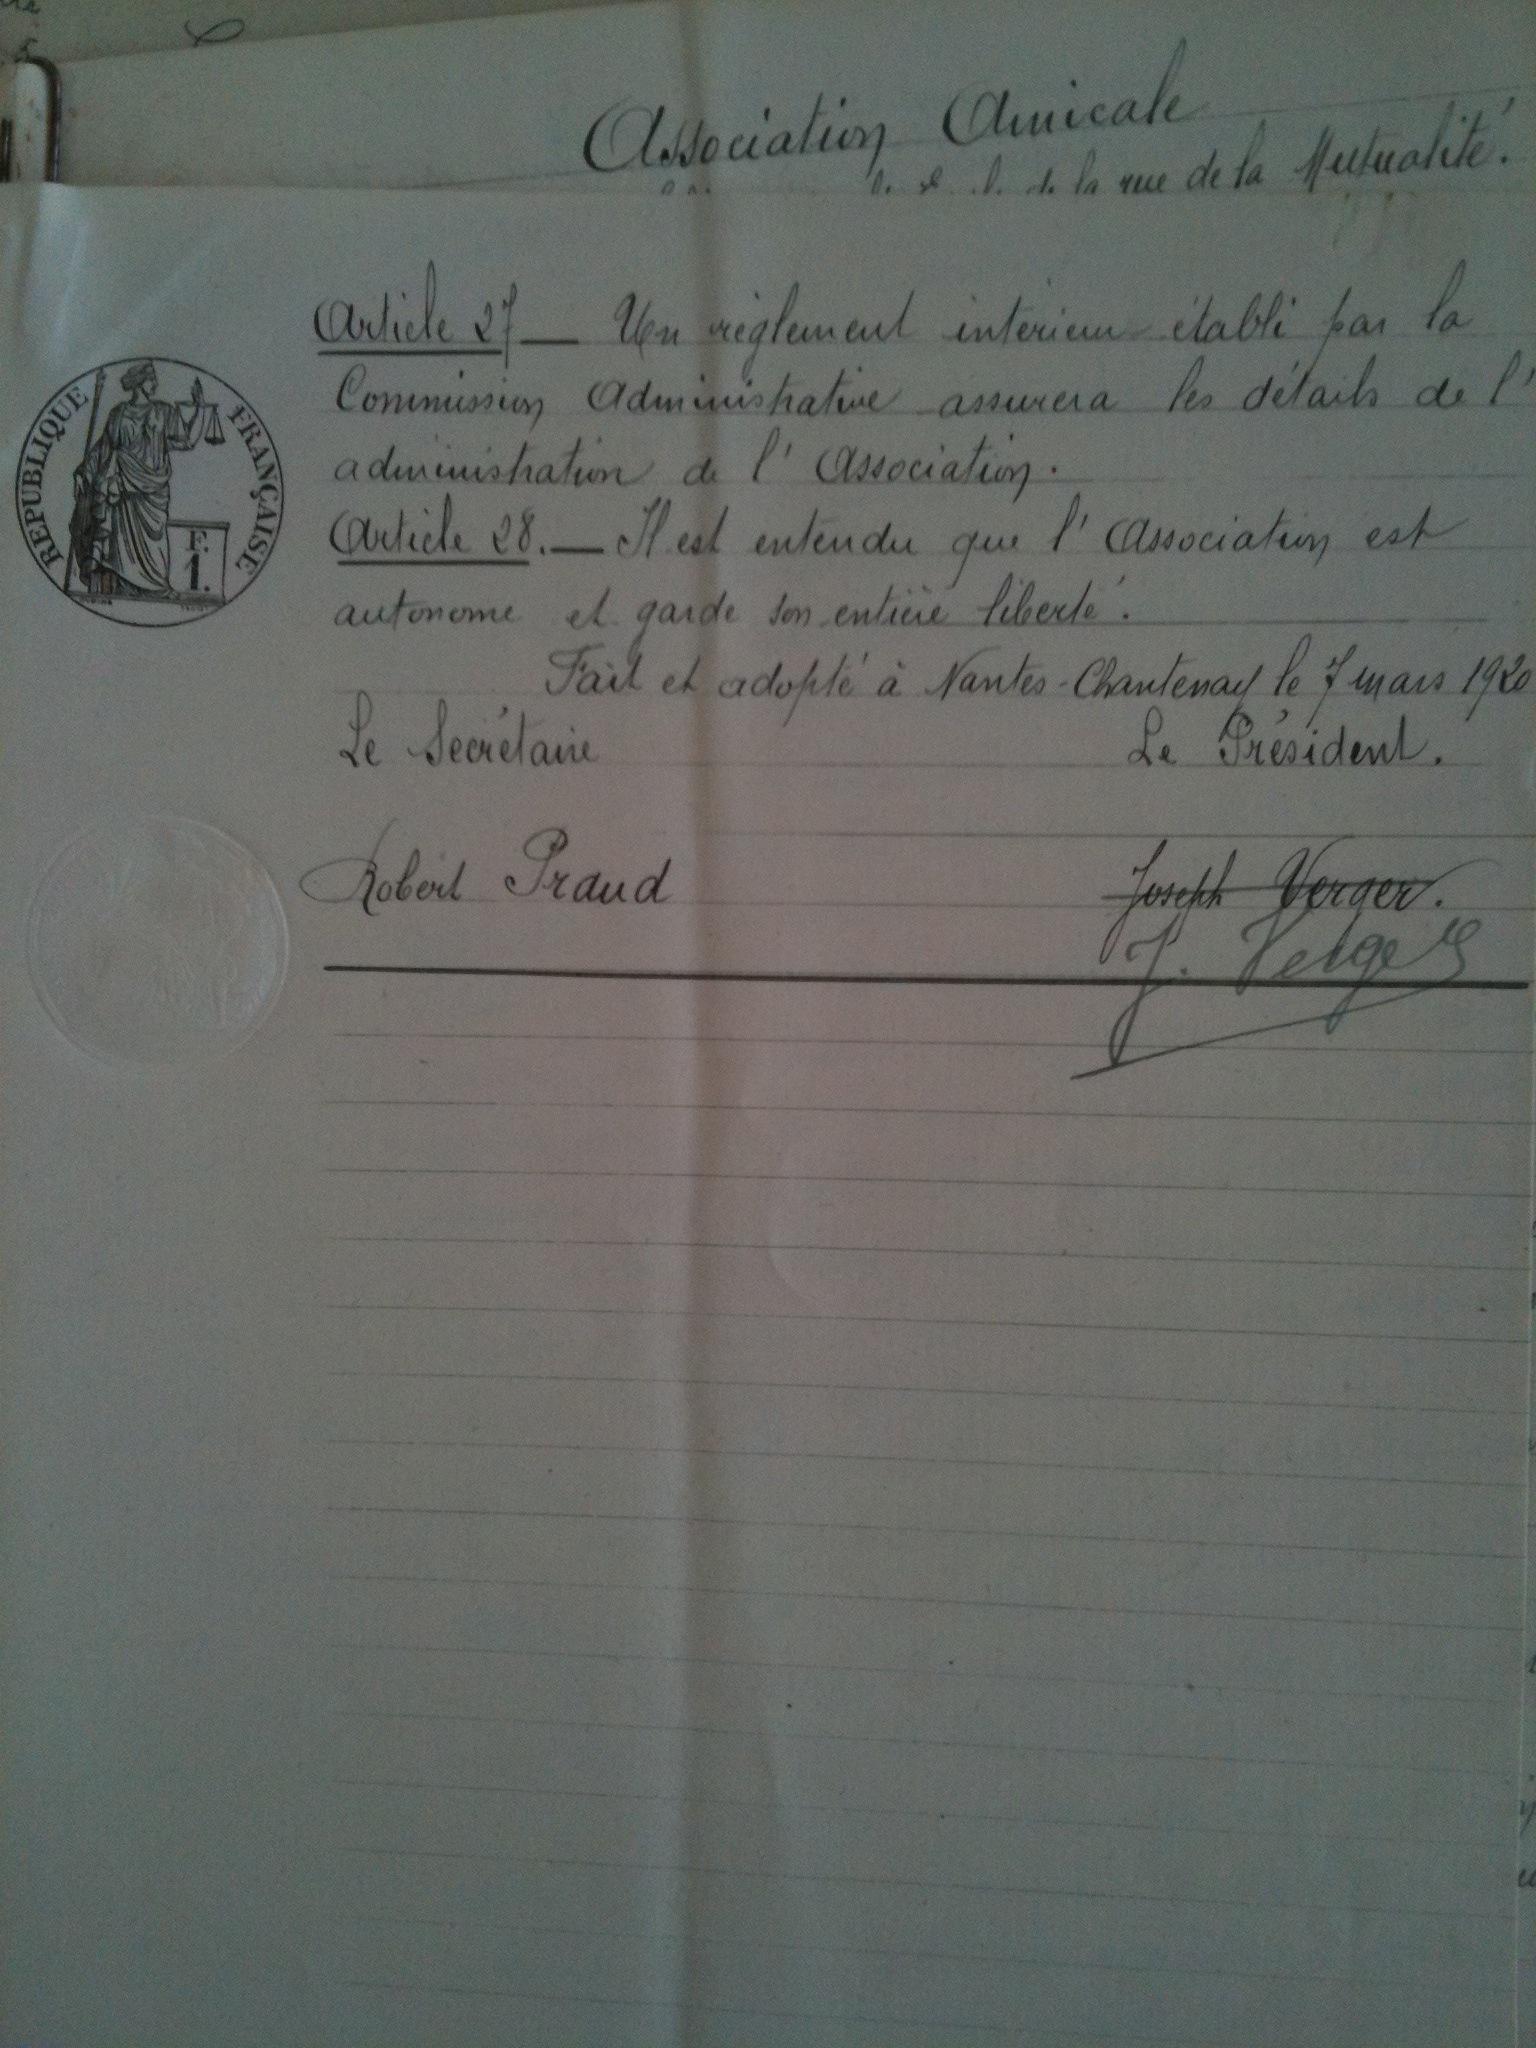 Association Amicale
de la rue de la Mutualité.
Article 27 — Un règlement intérieur établi par la
Commission Administrative assurera les détails de l'
administration de l'Association.
Article 28. — Il est entendu que l'Association est
autonome et garde son entière liberté.
Fait et adopté à Nantes-Chantenay le 7 mars 1920
Le Secrétaire
Le Président.
Robert Praud
Joseph Verger.
J. Verger
RÉPUBLIQUE FRANÇAISE
F.
1.